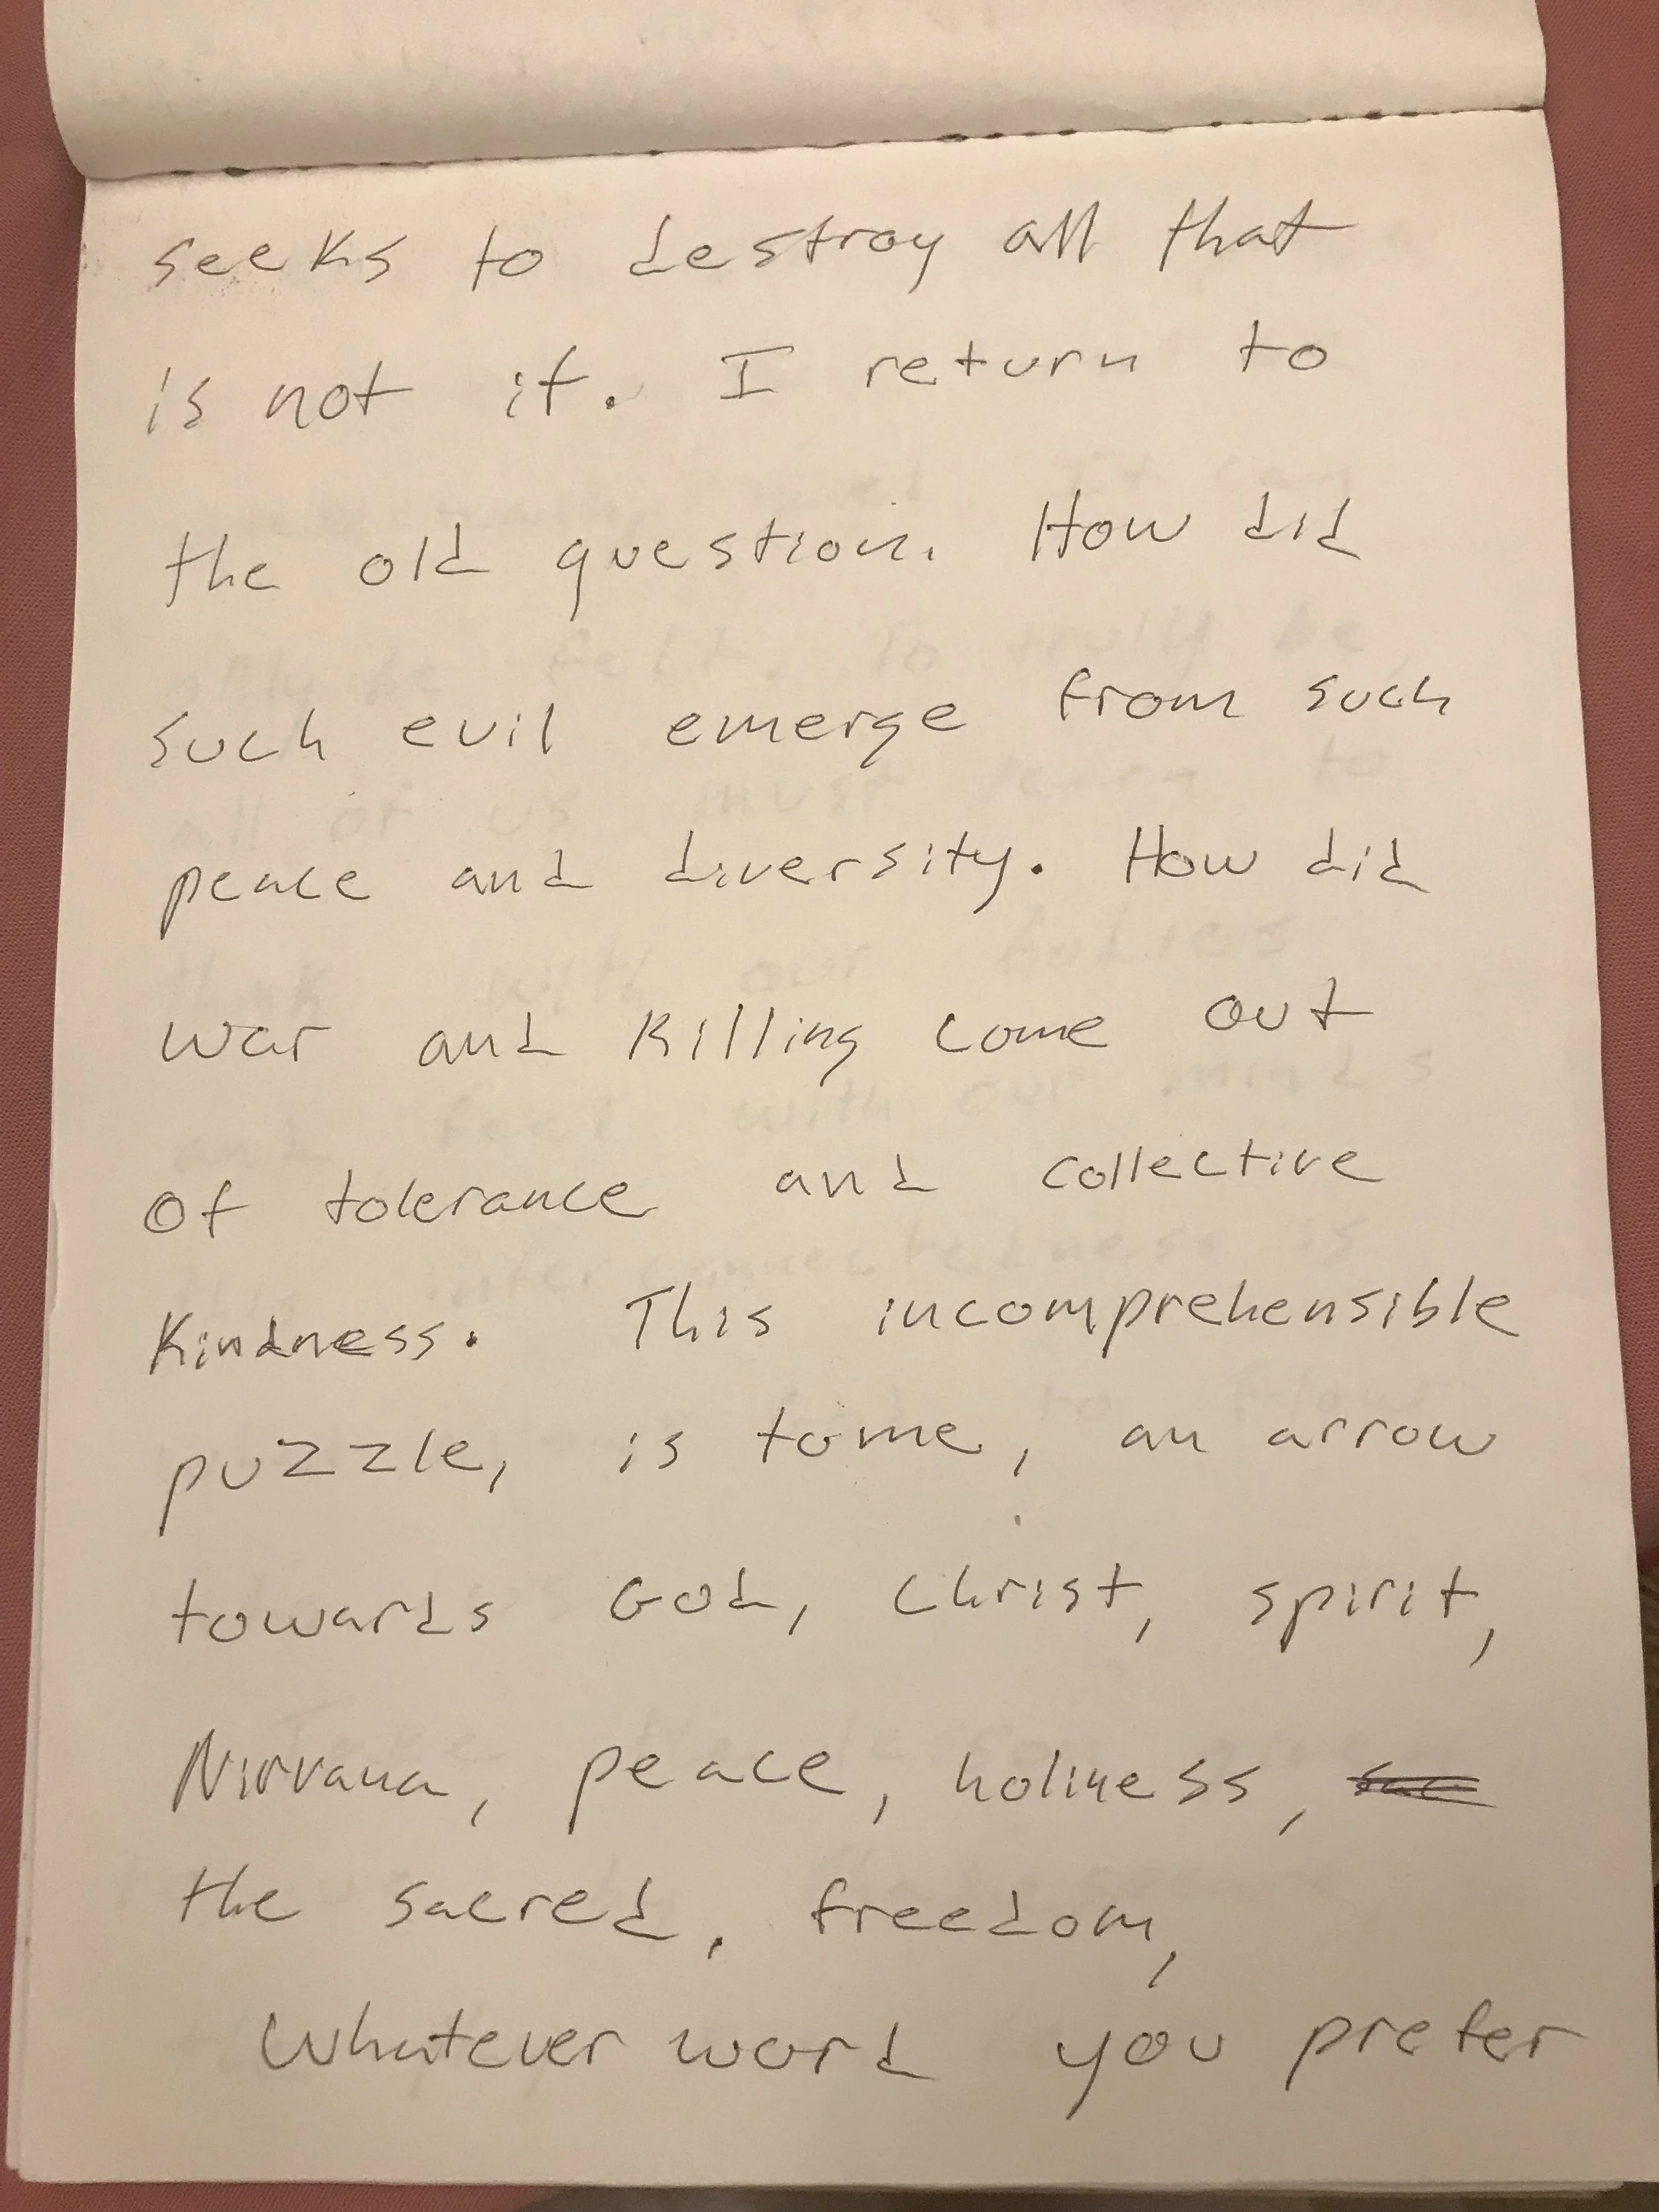 seeks to destroy all that
is not it. I return to
the old question. How did
such evil emerge from such
peace and diversity. How did
war and killing come out
of tolerance and collective
kindness. This incomprehensible
puzzle, is to me, an arrow
towards God, Christ, spirit,
Nirvana, peace, holiness,
the sacred, freedom,
whatever word you prefer